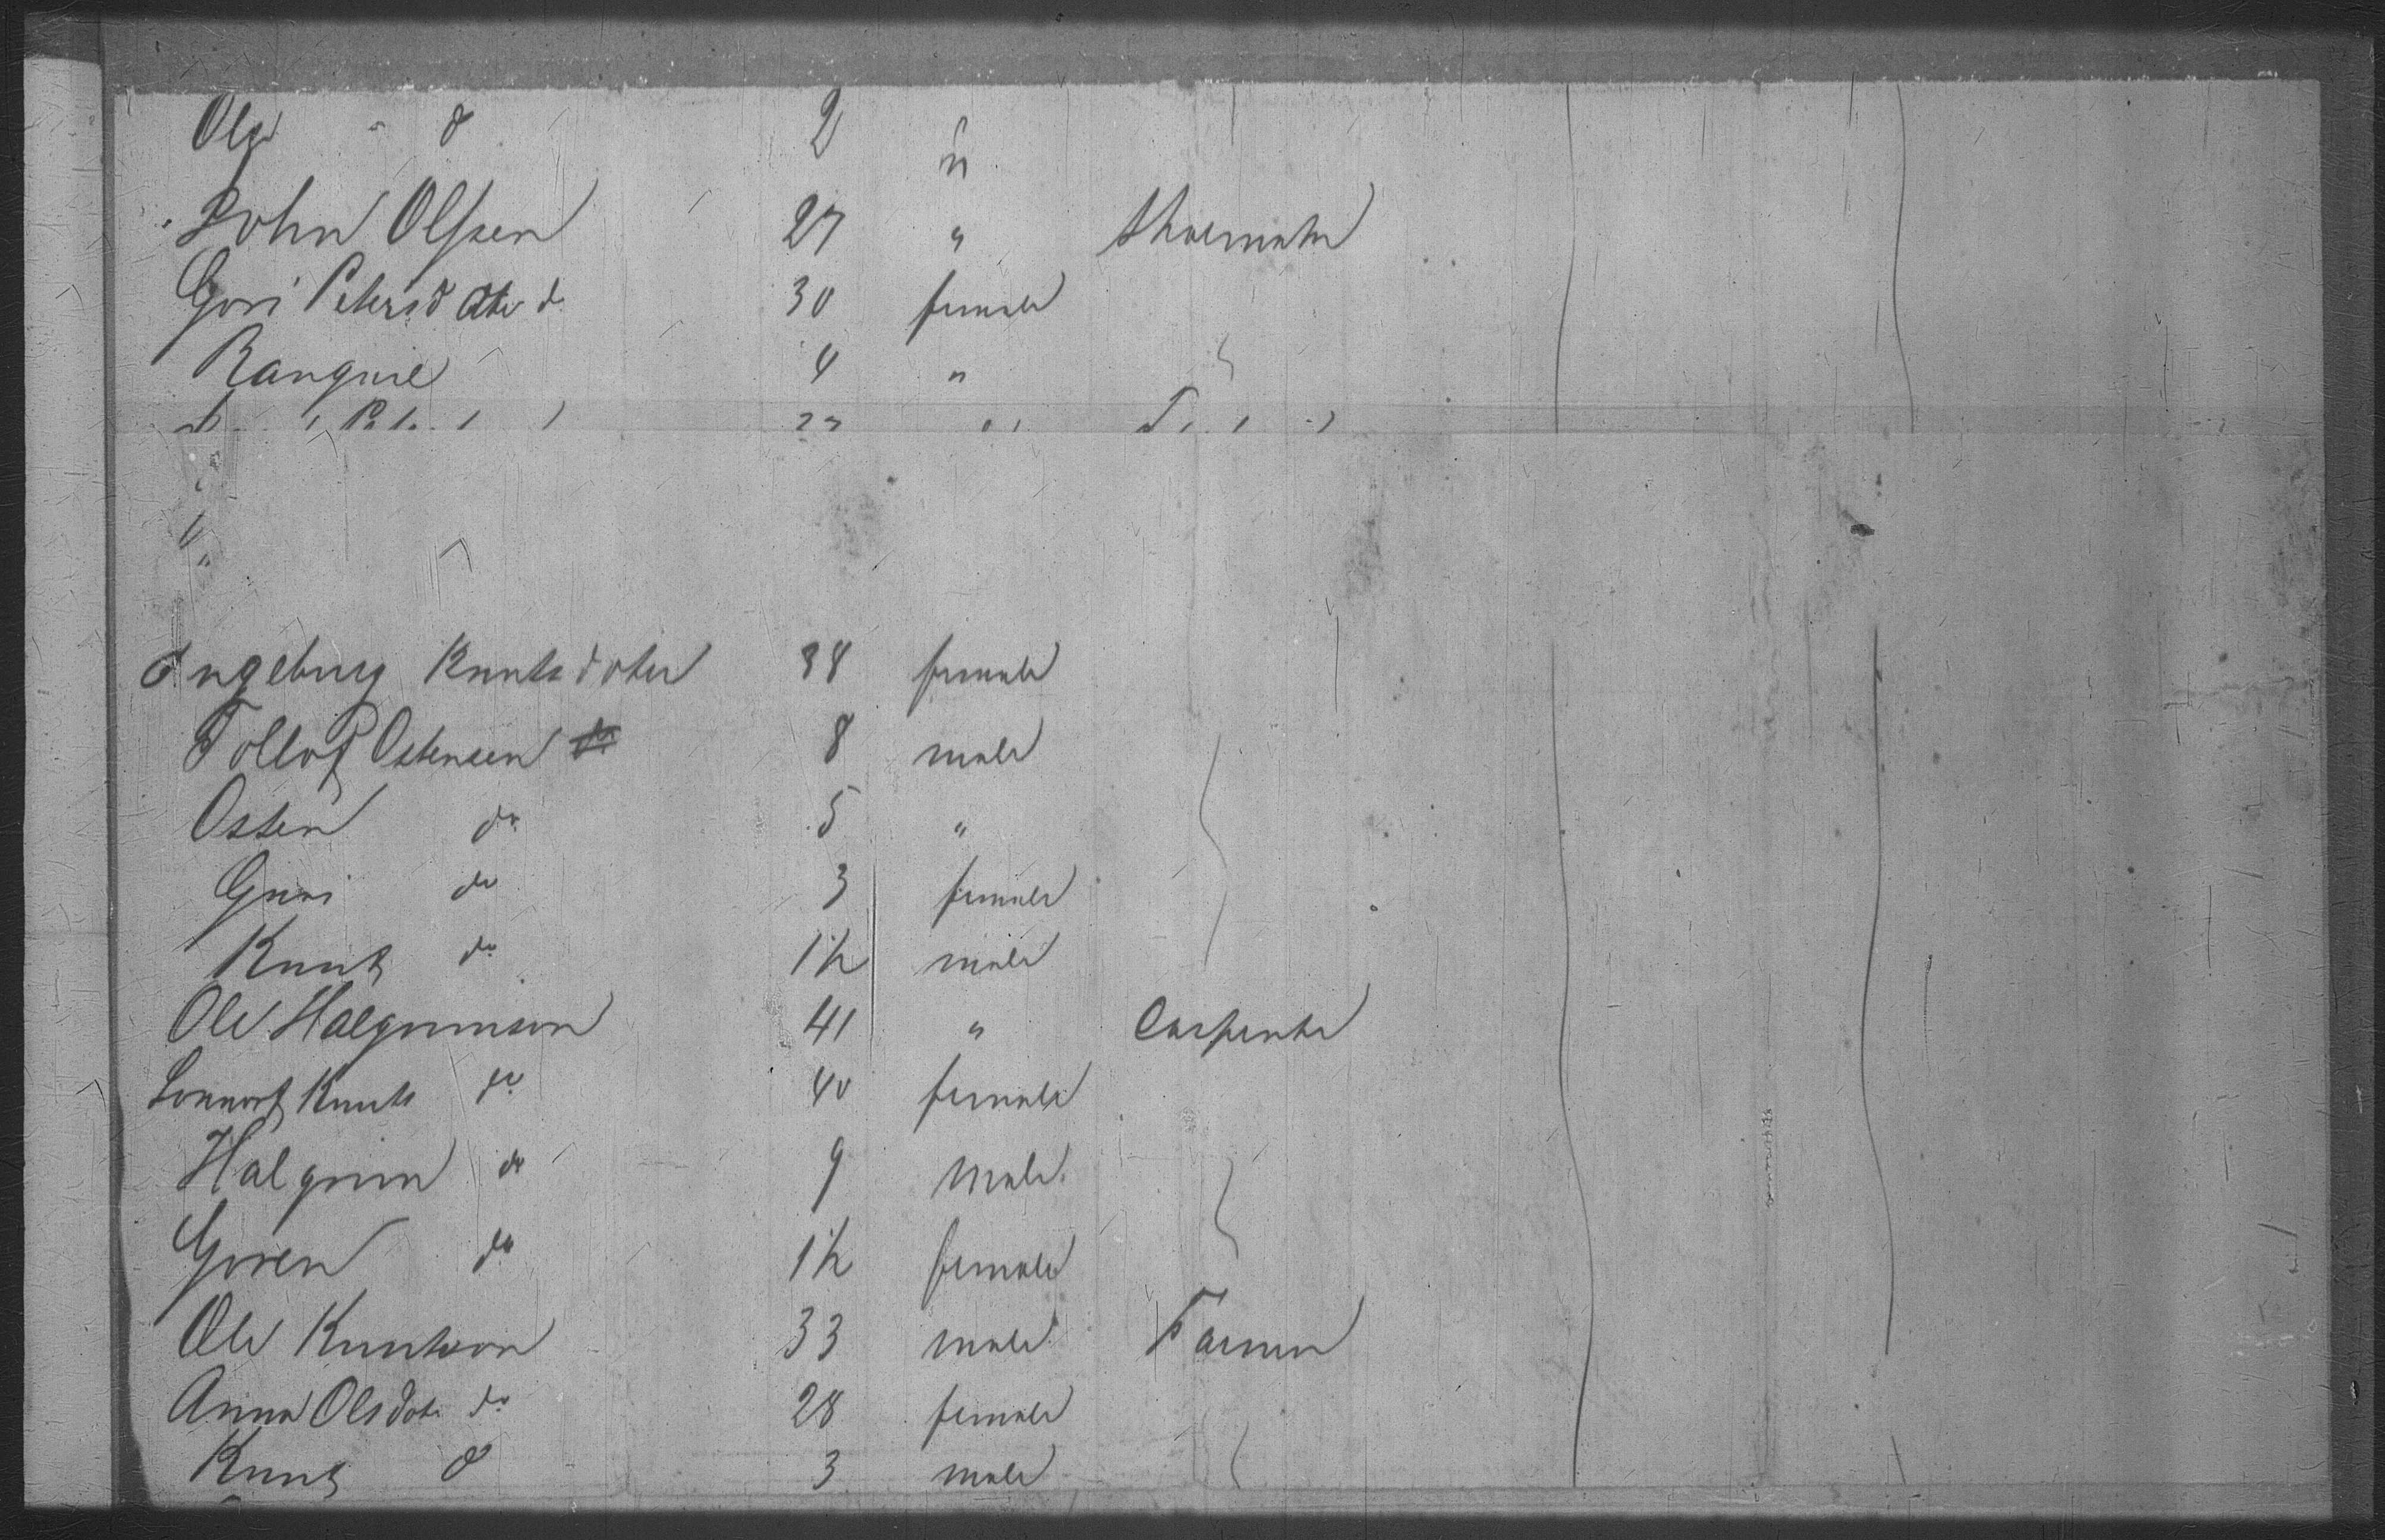 Ole d 2 "
John Olssen 27 " Shoemaker
Gori Petersdater do 30 female
Rangnel 4 "
Ingeburg Knutsdoter 38 female
Tollof Ostensen 8 male
Osten do 5 "
Guri do 3 female
Knut do 1½ male
Ole Halgrimson 41 " Carpenter
Knuts do 40 female
Halgrim do 9 male
Goren do 1½ female
Ole Knutson 33 male Farmer
Anna Olsdotr do 28 female
Knut d 3 male